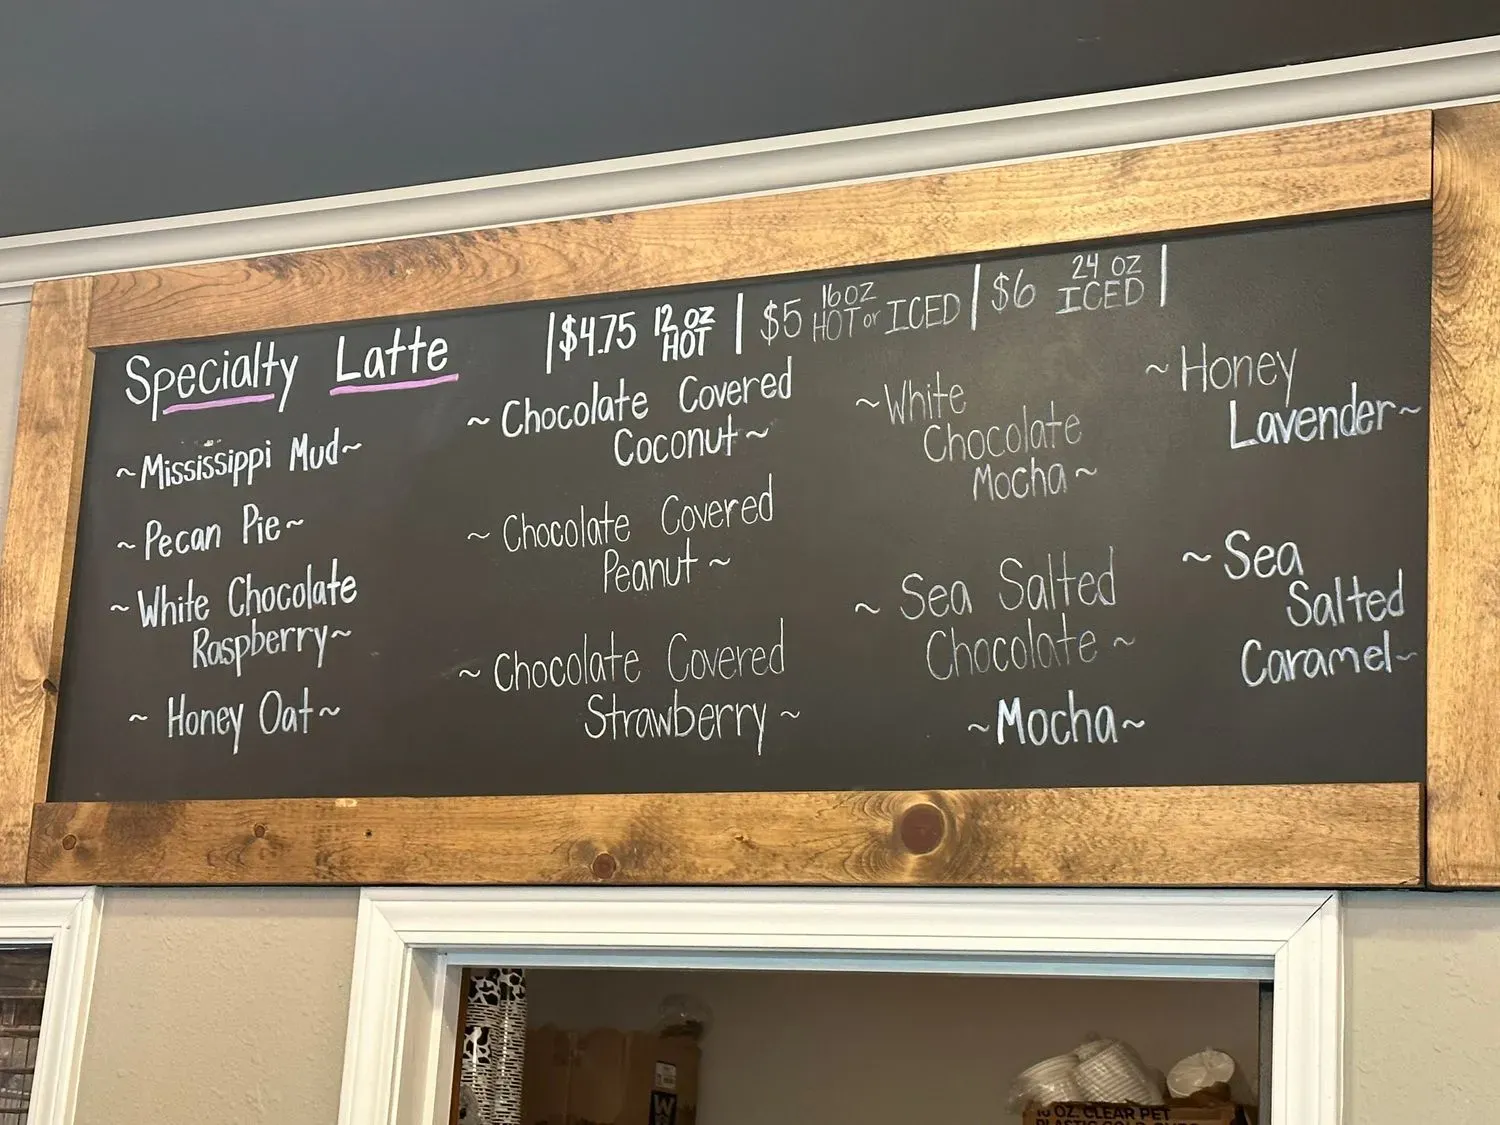 Specialty Latte
|$4.75 12 oz HOT | $5 16 oz HOT or ICED | $6 24 oz ICED |
~Mississippi Mud~
~Pecan Pie~
~White Chocolate
Raspberry~
~ Honey Oat~
~Chocolate Covered
Coconut~
~ Chocolate Covered
Peanut ~
~ Chocolate Covered
Strawberry ~
~White
Chocolate
Mocha~
~ Sea Salted
Chocolate ~
~Mocha~
~Honey
Lavender~
~Sea
Salted
Caramel~
W
16 OZ. CLEAR PET
PLASTIC COLD CUPS